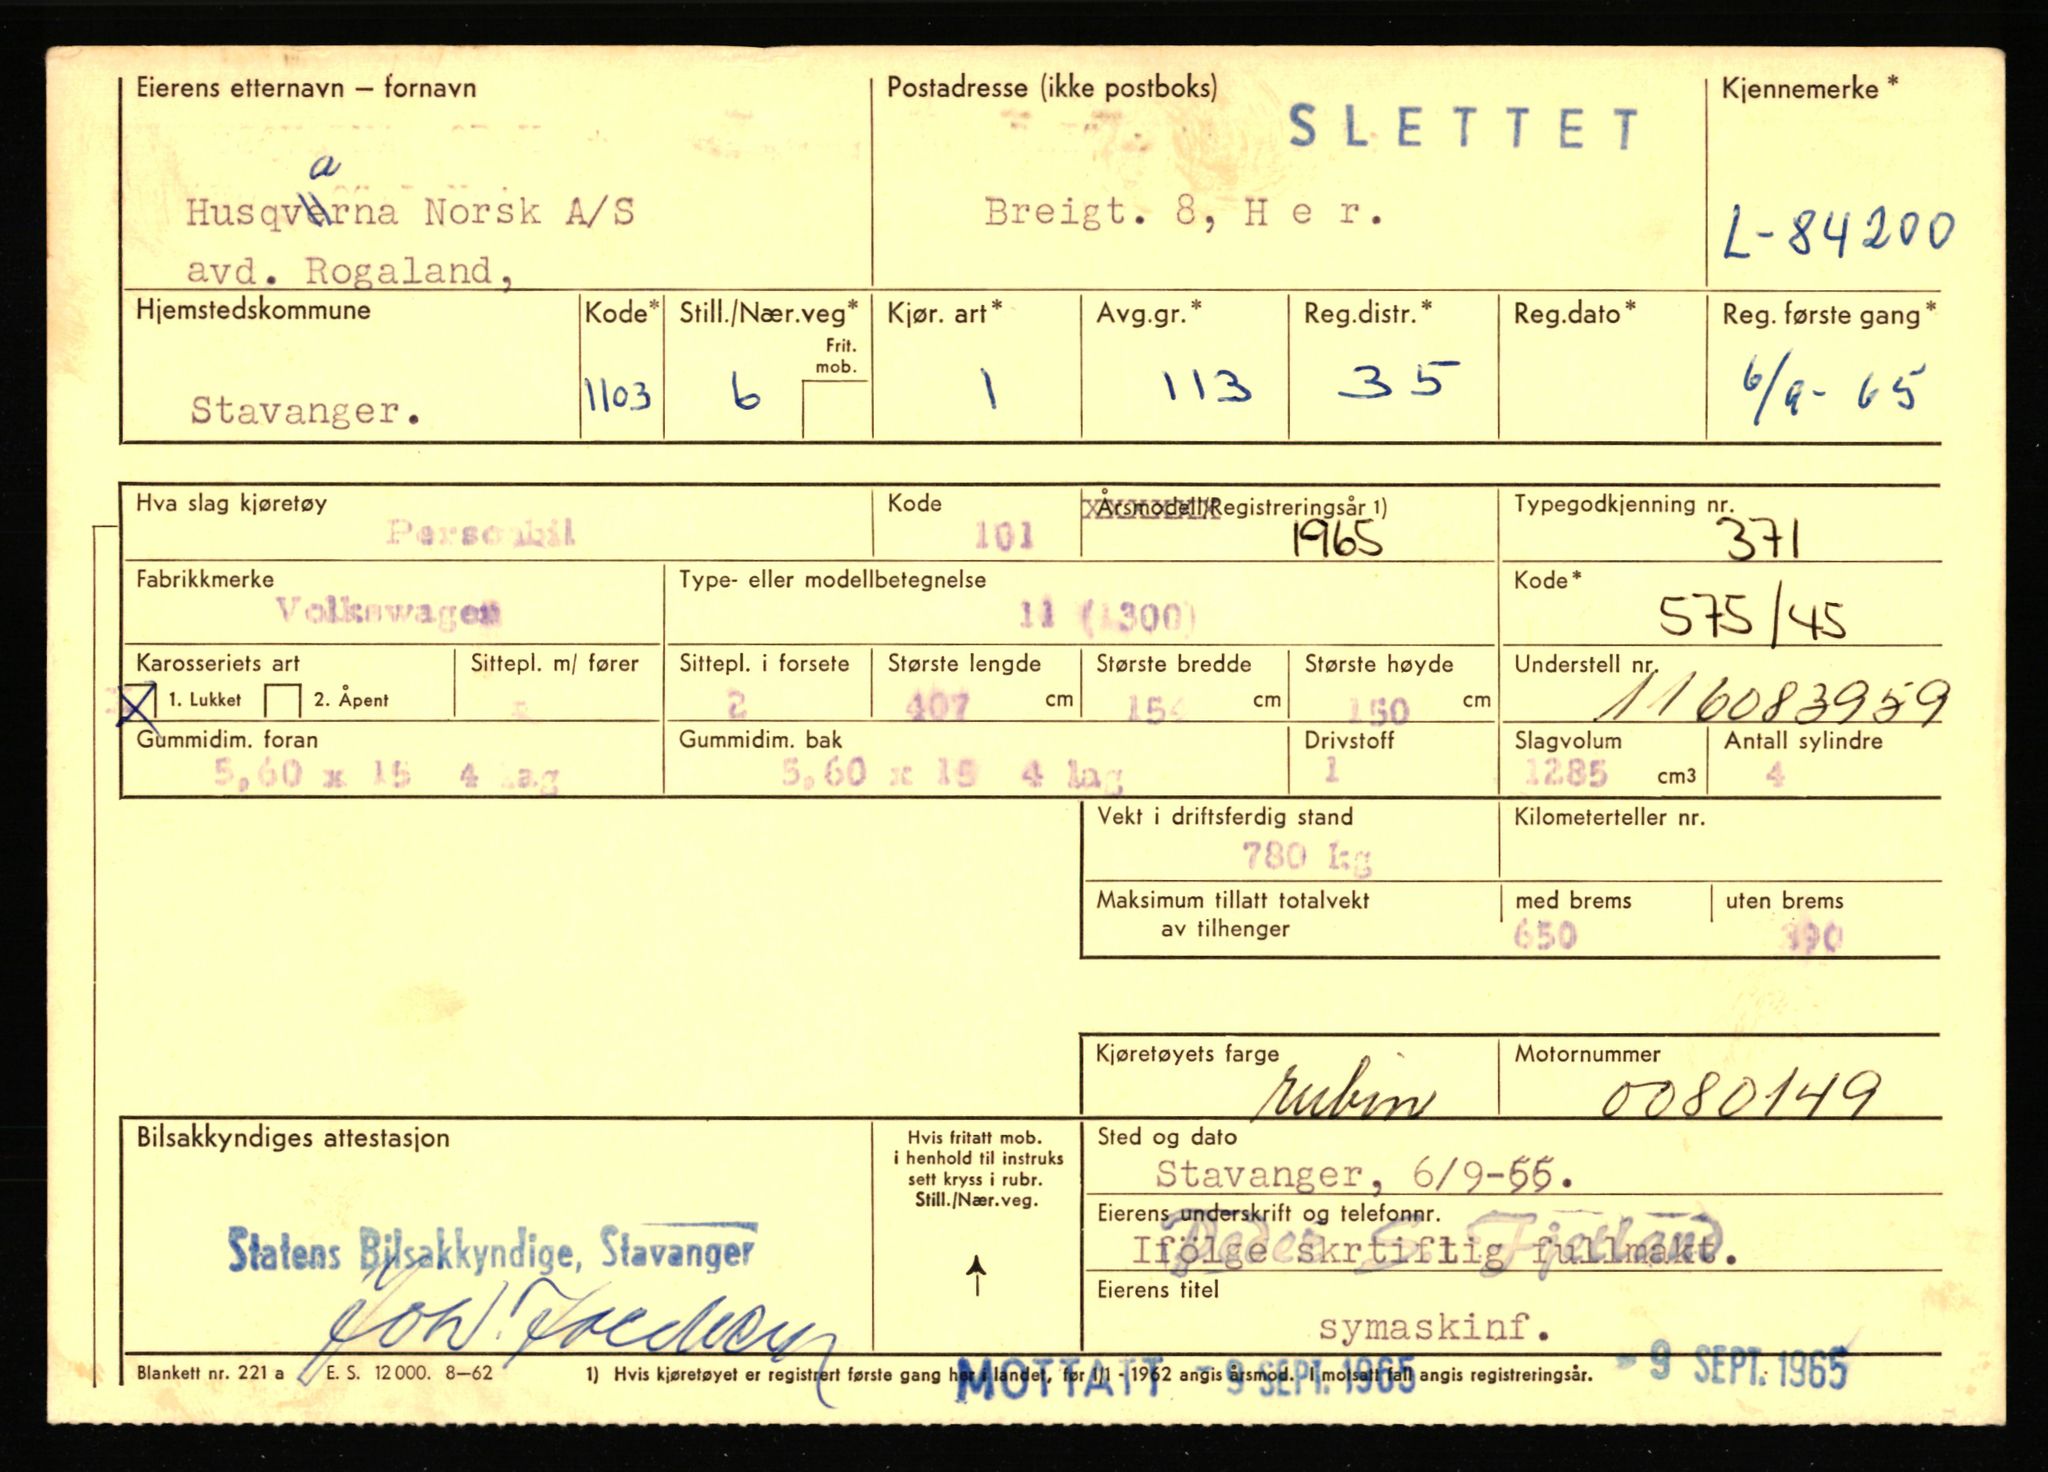 Eierens etternavn – fornavn
Postadresse (ikke postboks)
Kjennemerke*
SLETTET
a
Husqverna Norsk A/S
Breigt. 8, H e r.
L-84200
avd. Rogaland,
Hjemstedskommune
Kode*
Still./Nær.veg*
Kjør. art*
Avg.gr.*
Reg.distr.*
Reg.dato*
Reg. første gang*
Frit.
mob.
Stavanger.
1103
6
1
113
35
6/9-65
Hva slag kjøretøy
Kode
Årsmodell/Registreringsår 1)
Typegodkjenning nr.
Personbil
101
1965
371
Fabrikkmerke
Type- eller modellbetegnelse
Kode*
Volkswagen
11 (1300)
575/45
Karosseriets art
Sittepl. m/ fører
Sittepl. i forsete
Største lengde
Største bredde
Største høyde
Understell nr.
X 1. Lukket
2. Åpent
2
407 cm
154 cm
150 cm
116083959
Gummidim. foran
Gummidim. bak
Drivstoff
Slagvolum
Antall sylindre
5,60 x 15 4 lag
5,60 x 15 4 lag
1
1285 cm3
4
Vekt i driftsferdig stand
Kilometerteller nr.
780 kg
Maksimum tillatt totalvekt
av tilhenger
med brems
uten brems
650
390
Kjøretøyets farge
Motornummer
rubin
0080149
Bilsakkyndiges attestasjon
Hvis fritatt mob.
i henhold til instruks
sett kryss i rubr.
Still./Nær.veg.
Sted og dato
Stavanger, 6/9-55.
Eierens underskrift og telefonnr.
Ifölge skrtiftlig fullmakt.
Statens Bilsakkyndige, Stavanger
Eierens titel
symaskinf.
Blankett nr. 221 a E. S. 12 000. 8–62
1) Hvis kjøretøyet er registrert første gang her i landet, før 1/1 - 1962 angis årsmod. I motsatt fall angis registreringsår.
MOTTATT - 9 SEPT. 1965
- 9 SEPT. 1965